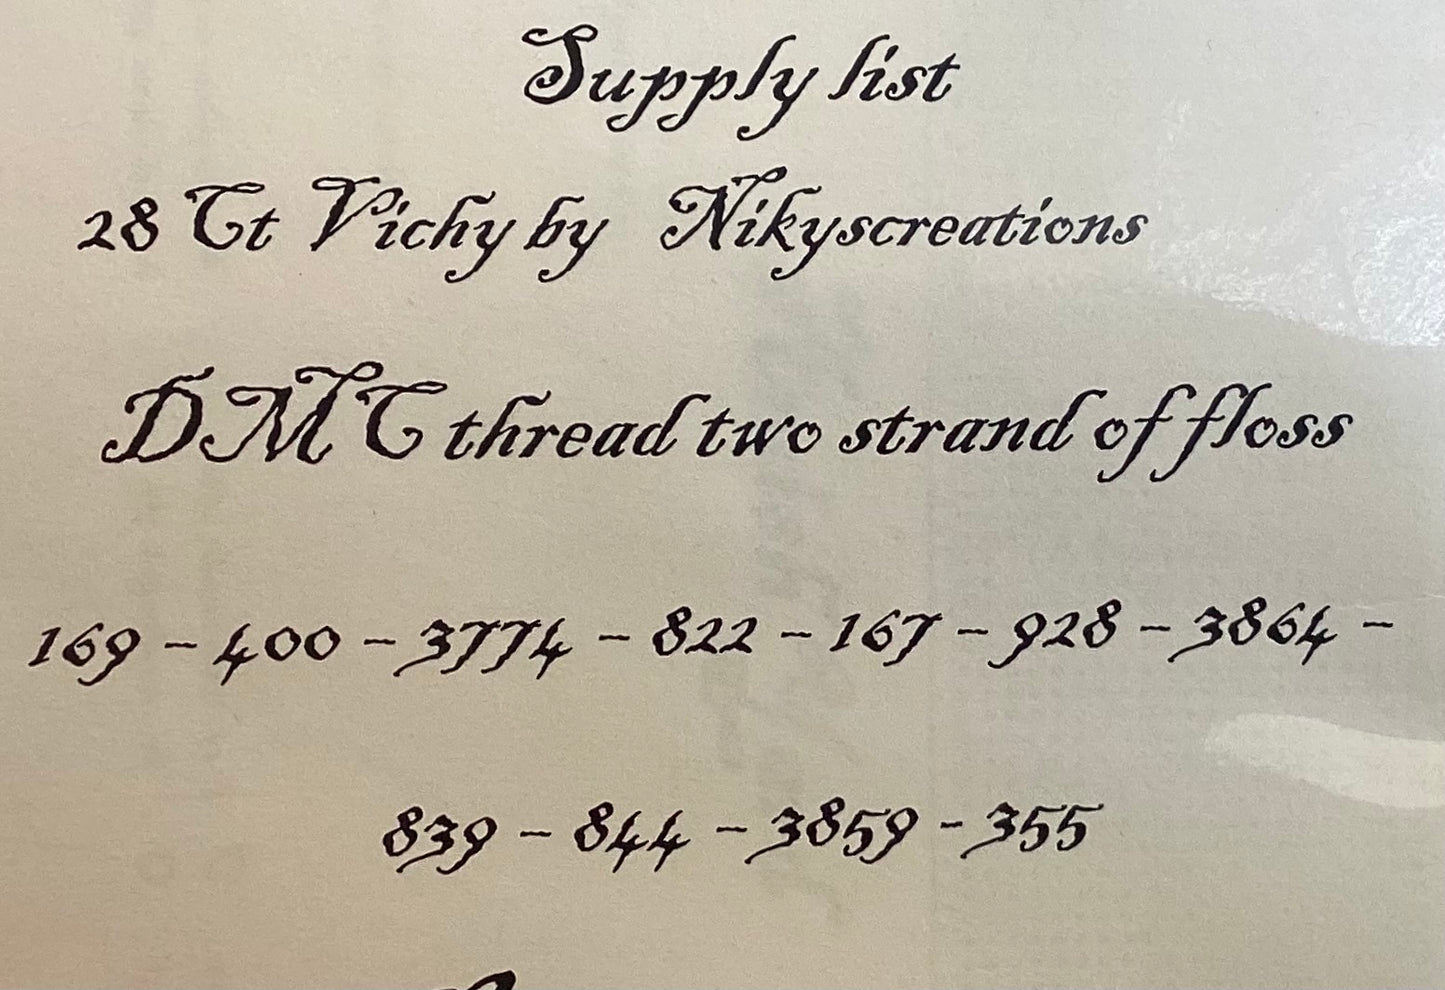 Supply list
28 Ct Vichy by Nikyscreations
DMC thread two strand of floss
169 - 400 - 3774 - 822 - 167 - 928 - 3864 -
839 - 844 - 3859 - 355